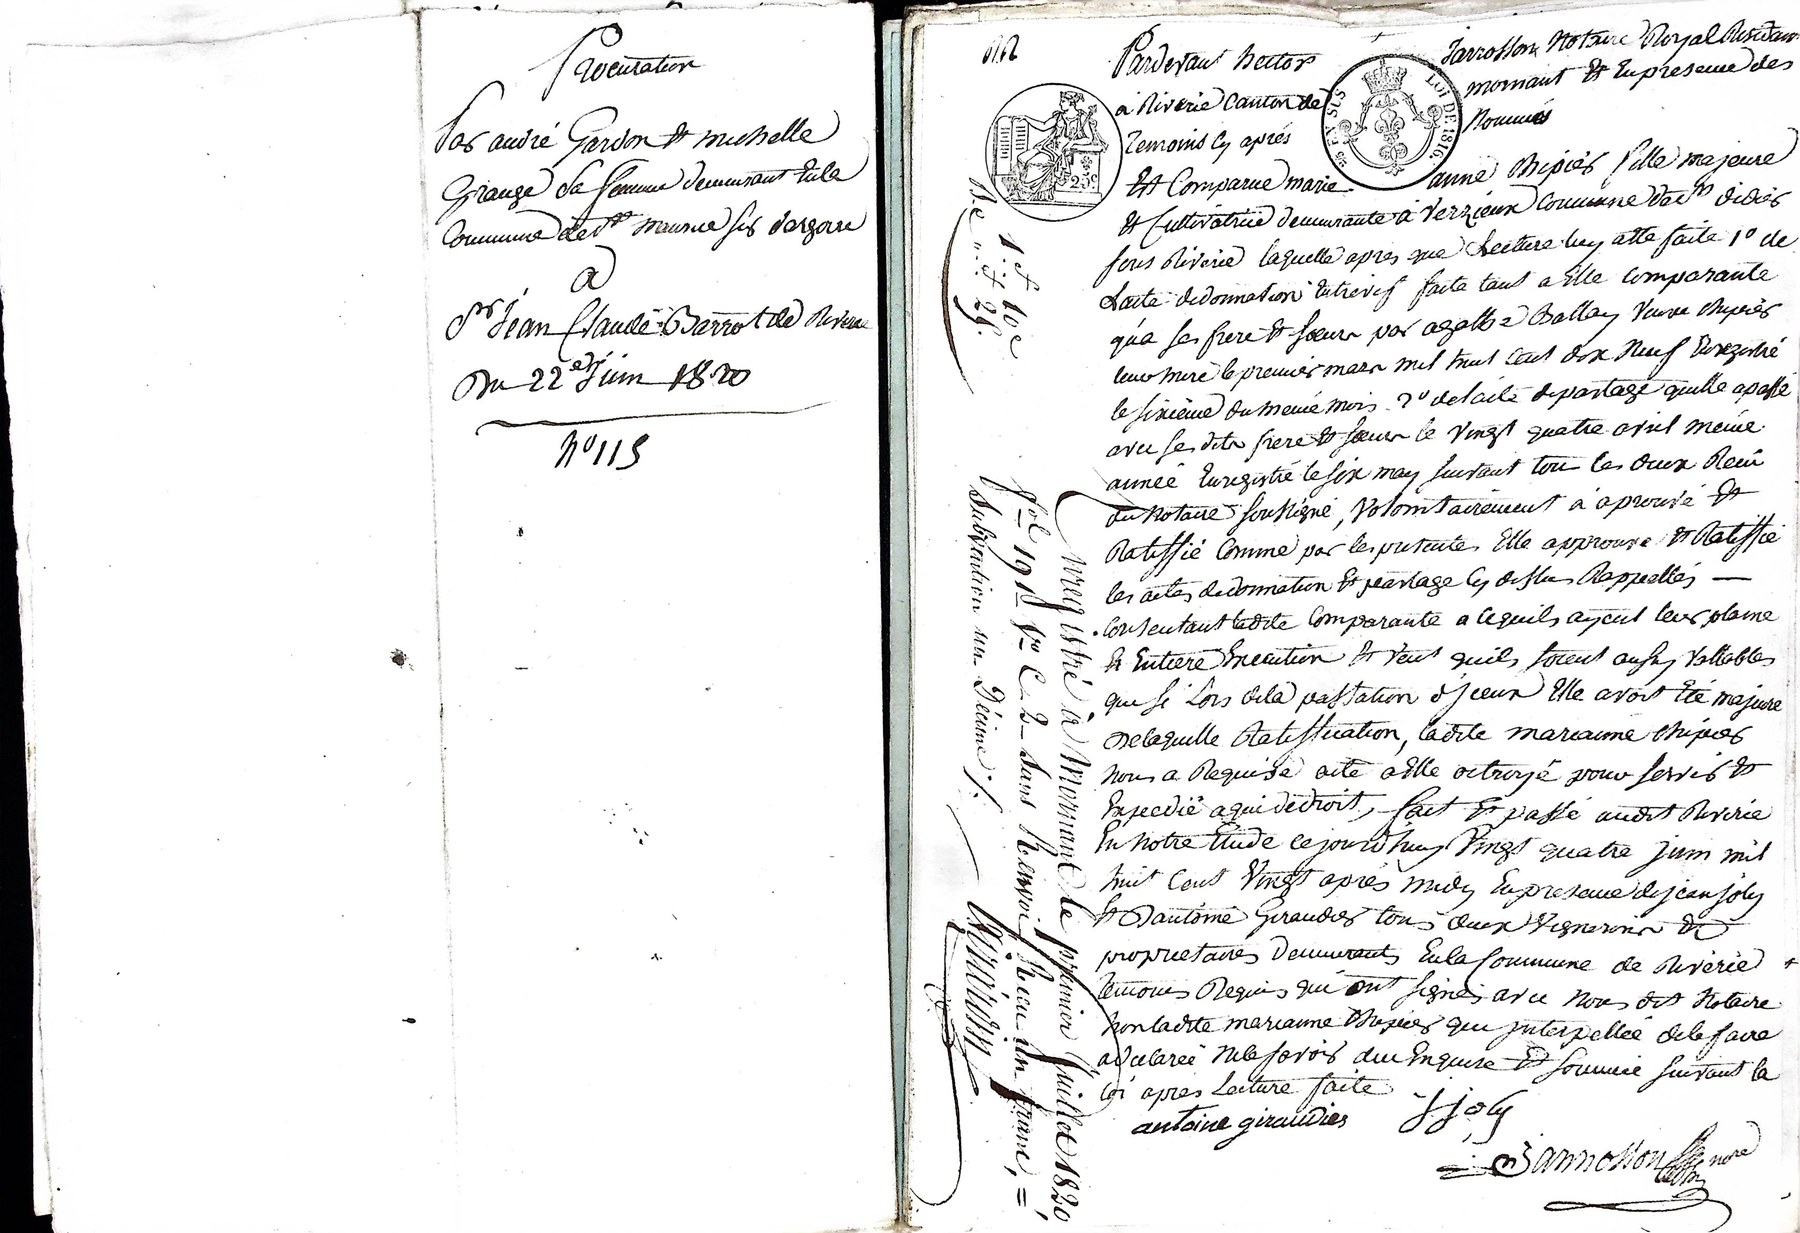 Procuration
Par andré Gardon et michelle
Grange Sa femme demeurant En la
Commune de St maurice sur dargoire
a
Sr Jean Claude Barrot de Riverie
Du 22 juin 1820
N° 115
Pardevant hector Jarrosson Notaire Royal Résidant
à Riverie Canton de mornant Et En presence des
Temoins Cy aprés Nommés
25c
LOI DE 1816.
Est Comparue marie anne Chipier fille majeure
et Cultivatrice demeurante à Verzieux Commune de St didier
sous Riverie laquelle apres que Lecture luy atte faite 1° de
Lacte de donnation Entrevif faite tant a Elle Comparante
qu'a ses frere et soeurs par agathe Ballay Veuve Chipier
leur mere le premier mars mil huit Cent dix Neuf Enregistré
le sixième du même mois 2° de lacte de partage quelle a passé
avec ses dits frere et soeurs le Vingt quatre avril même
année Enregistré le six may suivant tous les deux Recu
du Notaire soussigné, Volontairement à aprouvé et
Ratiffié Comme par les presentes Elle approuve et Ratiffie
les actes de donnation et partage Cy dessus Rappellés —
Consentant ladite Comparante a cequils ayent leur plaine
et Entiere Execution et Veut quils soient aussy Vallables
que si Lors de la passation d'jceux Elle avoit Eté majeure
De laquelle Ratiffication, ladite marianne Chipier
nous a Requise acte a Elle octroyé pour servir et
Expedié a qui de droit, fait et passé audit Riverie
En notre Etude ce jourdhuy Vingt quatre juin mil
huit Cent Vingt aprés midy En presence de jean joly
et D'antoine Giraudier tous deux Vignerons et
proprietaires demeurants En la Commune de Riverie
temoins Requis qui ont signés avec nous dit Notaire
non ladite marianne Chipier qui jnterpellée de le faire
a declareé ne le savoir de ce Enquise et sommée suivant la
loi apres Lecture faite
antoine giraudier
j joly
Jarrosson nore
1 f 10 c
25
Enregistré à Mornant le premier Juillet 1820
fol 191 Vo C. 2 sans Renvoi Recu un franc,
Subvention un Décime